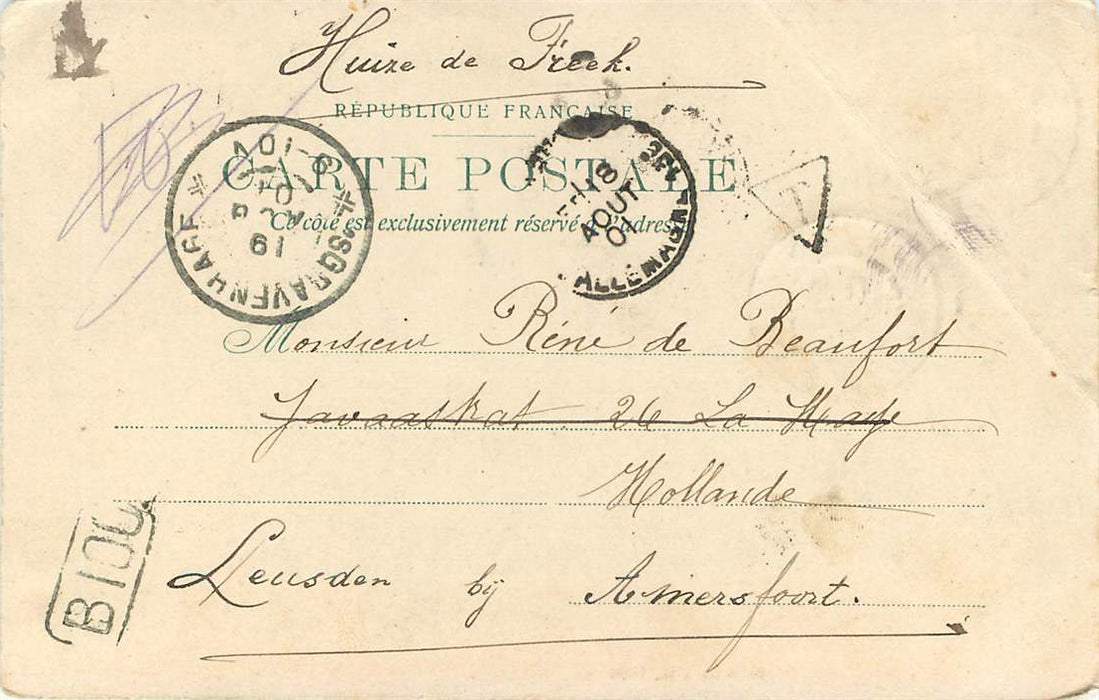 Huize de Treek.
RÉPUBLIQUE FRANÇAISE
CARTE POSTALE
Ce côté est exclusivement réservé à l'adresse
SGRAVENHAGE
18
AOUT
01
ALLEMAGNE
T
Monsieur Réné de Beaufort
Javaastrat 26 La Haye
Hollande
Leusden bij Amersfoort.